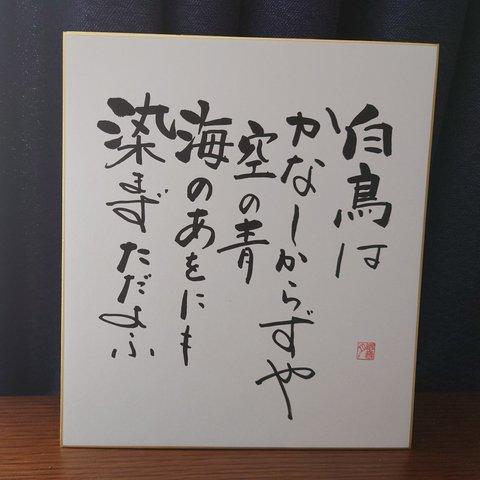 白鳥は
かなしからずや
空の青
海のあをにも
染まずただよふ